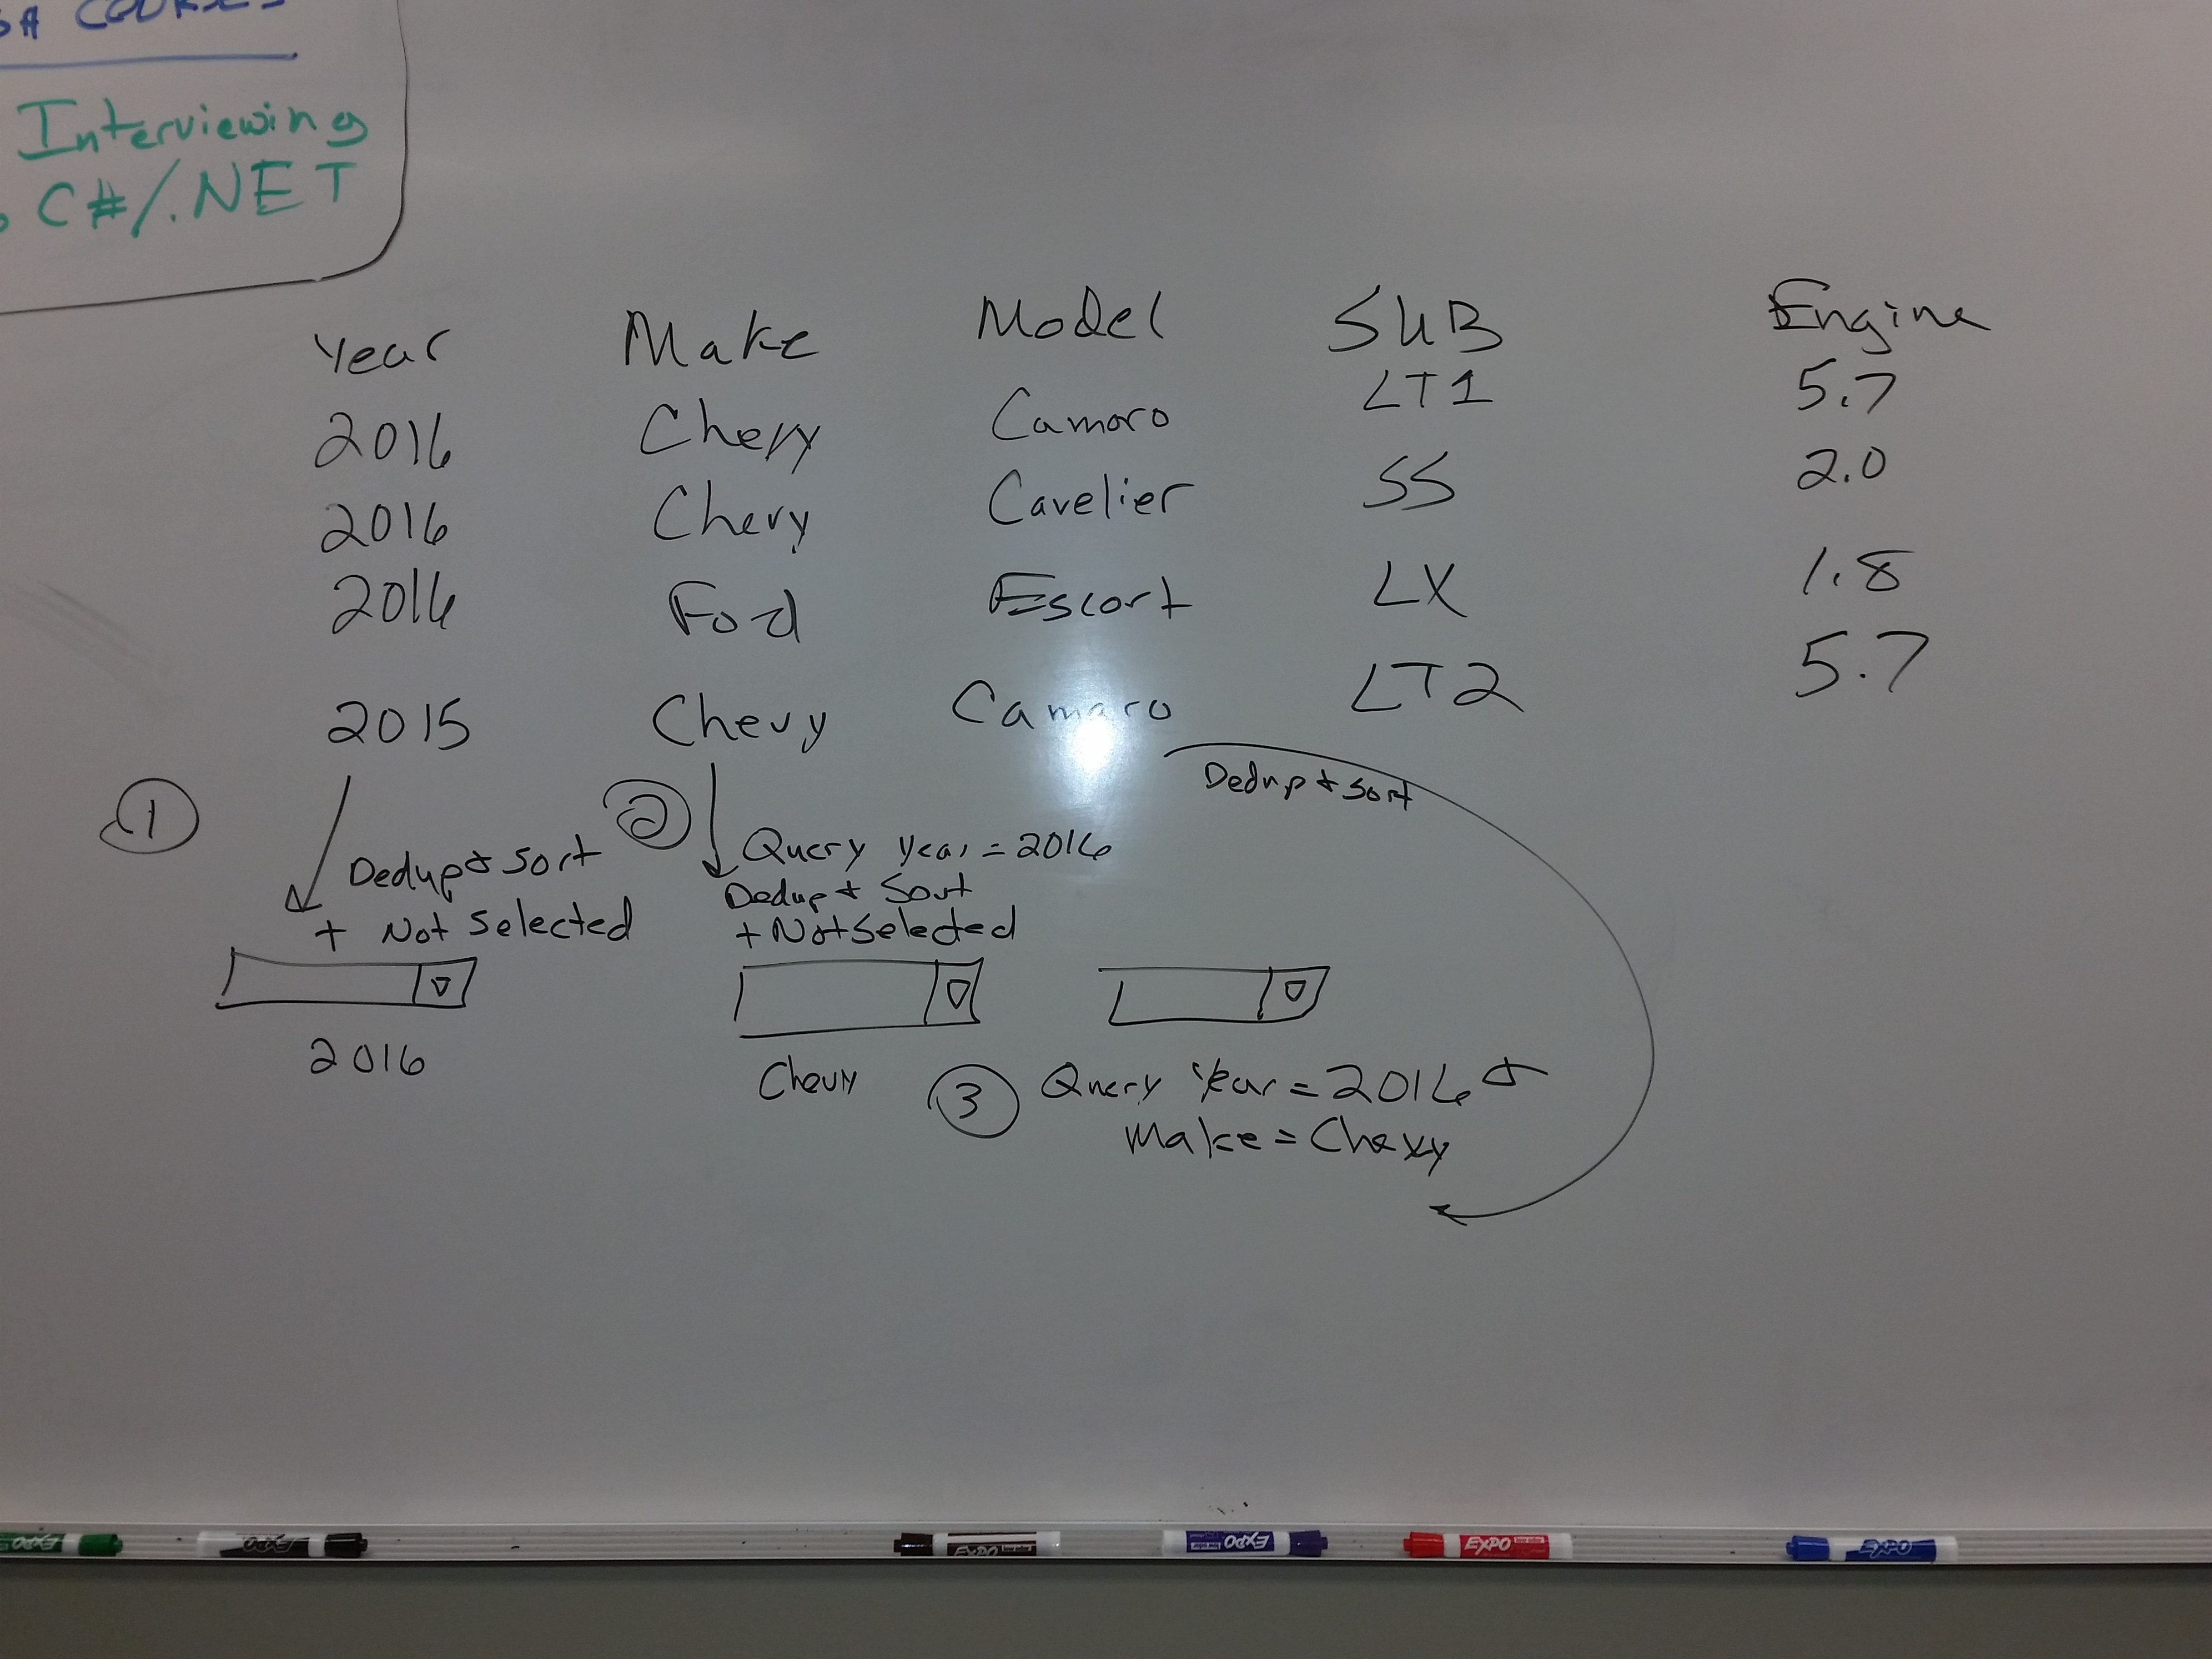 COURSES
Interviewing
C#/.NET
Year Make Model SUB Engine
2016 Chevy Camaro LT1 5.7
2016 Chevy Cavelier SS 2.0
2016 Ford Escort LX 1.8
2015 Chevy Camaro LT2 5.7
1
Dedup & Sort
+ Not Selected
2016
2
Query year = 2016
Dedup & Sort
+ Not Selected
Chevy
Dedup & Sort
3 Query Year = 2016 &
Make = Chevy
EXPO EXPO EXPO EXPO EXPO EXPO